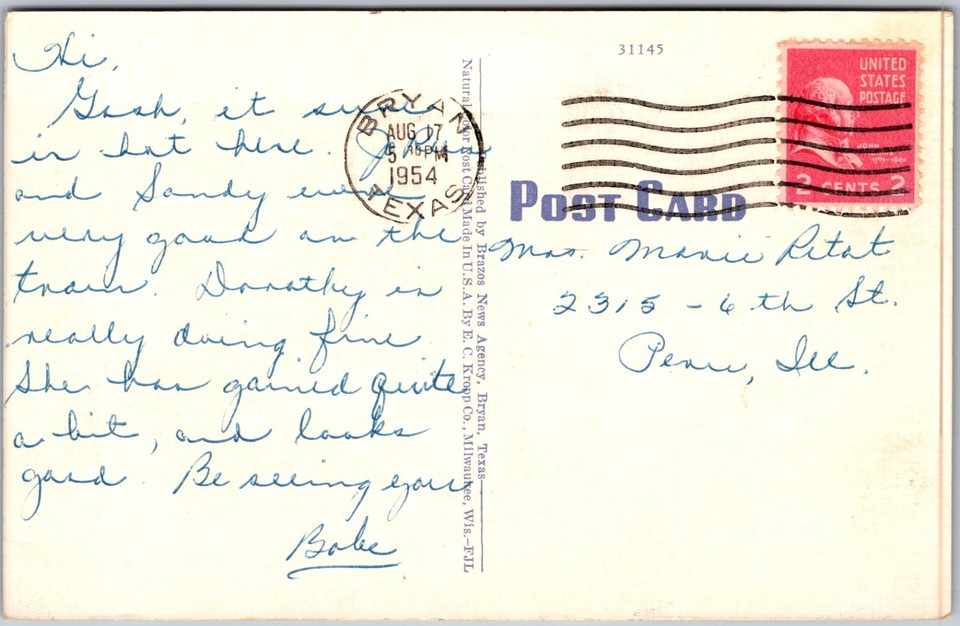 Hi,
Gosh, it sure
is hot here.
and Sandy were
very good on the
train. Dorothy is
really doing fine.
She has gained quite
a bit, and looks
good. Be seeing you
Bobe
BRYAN
AUG 17
5 PM
1954
TEXAS
Published by Brazos News Agency, Bryan, Texas
Natural Color Post Card Made In U.S.A. By E. C. Kropp Co., Milwaukee, Wis.-FJL
31145
POST CARD
UNITED
STATES
POSTAGE
JOHN
2 CENTS 2
Mrs. Marie
2315 - 6th St.
Peru, Ill.